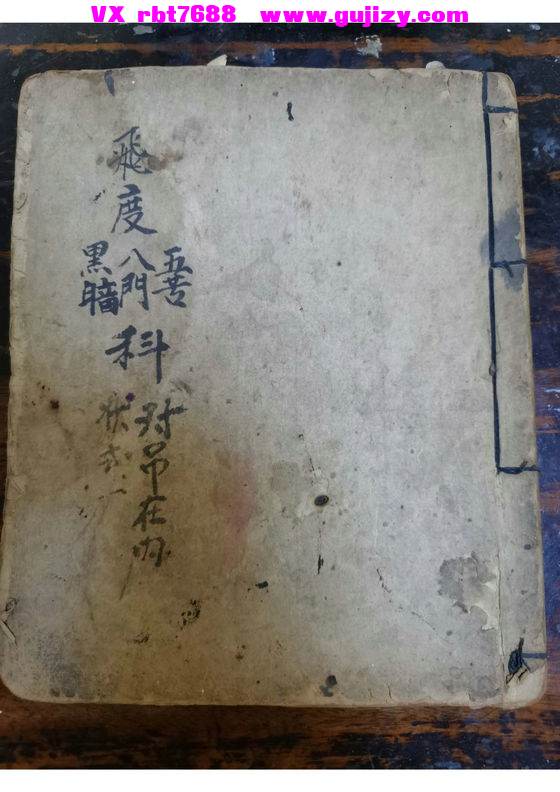 VX rbt7688 www.gujizy.com
飛度
五苦
八門
黑暗
科
對吊在内
狀式一